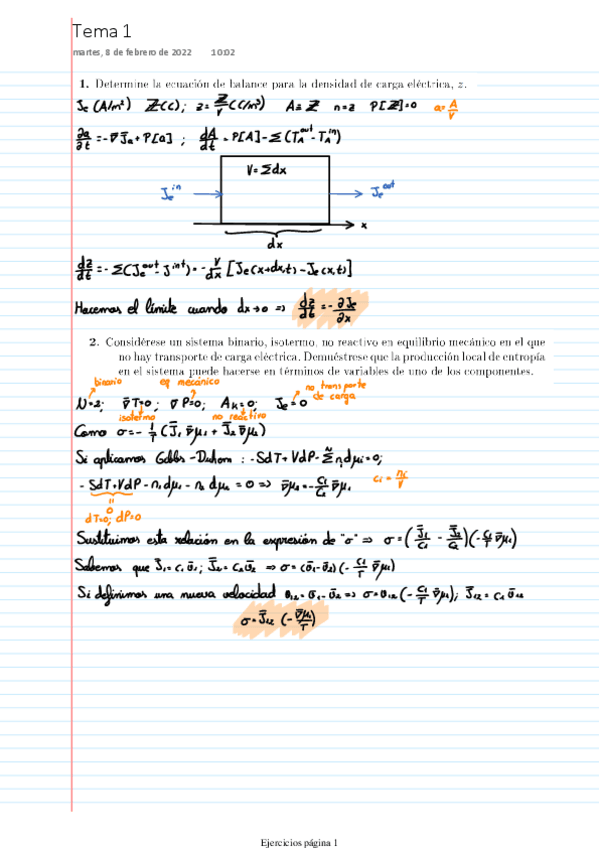 Tema 1
martes, 8 de febrero de 2022 10:02
1. Determine la ecuación de balance para la densidad de carga eléctrica, z.
Je (A/m²) Z(C); z = Z/V (C/m³) A ≡ Z n=z P[Z]=0 a = A/V
∂a/∂t = -∇Ja + P[a] ; dA/dt = P[A] - Σ(T_A^out - T_A^in)
V = Σdx
Je^in Je^out
x
dx
dz/dt = -Σ(Je^out - J^int) = -V/dx [Je(x+dx,t) - Je(x,t)]
Hacemos el límite cuando dx→0 ⇒ dz/dt = -∂Je/∂x
2. Considérese un sistema binario, isotermo, no reactivo en equilibrio mecánico en el que
no hay transporte de carga eléctrica. Demuéstrese que la producción local de entropía
en el sistema puede hacerse en términos de variables de uno de los componentes.
binario eq mecánico no transporte
de carga
N=2; ∇T=0; ∇P=0; Ak=0; Je=0
isotermo no reactivo
Como σ = -1/T (J̄₁ ∇̄μ₁ + J̄₂ ∇̄μ₂)
Si aplicamos Gibbs-Duhem : -SdT + VdP - Σ nᵢdμᵢ = 0;
-SdT + VdP - n₁dμ₁ - n₂dμ₂ = 0 ⇒ ∇̄μ₂ = -C₁/C₂ ∇̄μ₁ cᵢ = nᵢ/V
0
dT=0; dP=0
Sustituimos esta relación en la expresión de "σ" ⇒ σ = (J̄₁/C₁ - J̄₂/C₂)(-C₁/T ∇̄μ₁)
Sabemos que J̄₁ = C₁ v̄₁; J̄₂ = C₂ v̄₂ ⇒ σ = (v̄₁ - v̄₂)(-C₁/T ∇̄μ₁)
Si definimos una nueva velocidad v₁₂ = v̄₁ - v̄₂ ⇒ σ = v₁₂(-C₁/T ∇̄μ₁); J̄₁₂ = C₁ v̄₁₂
σ = J̄₁₂ (-∇̄μ₁/T)
Ejercicios página 1